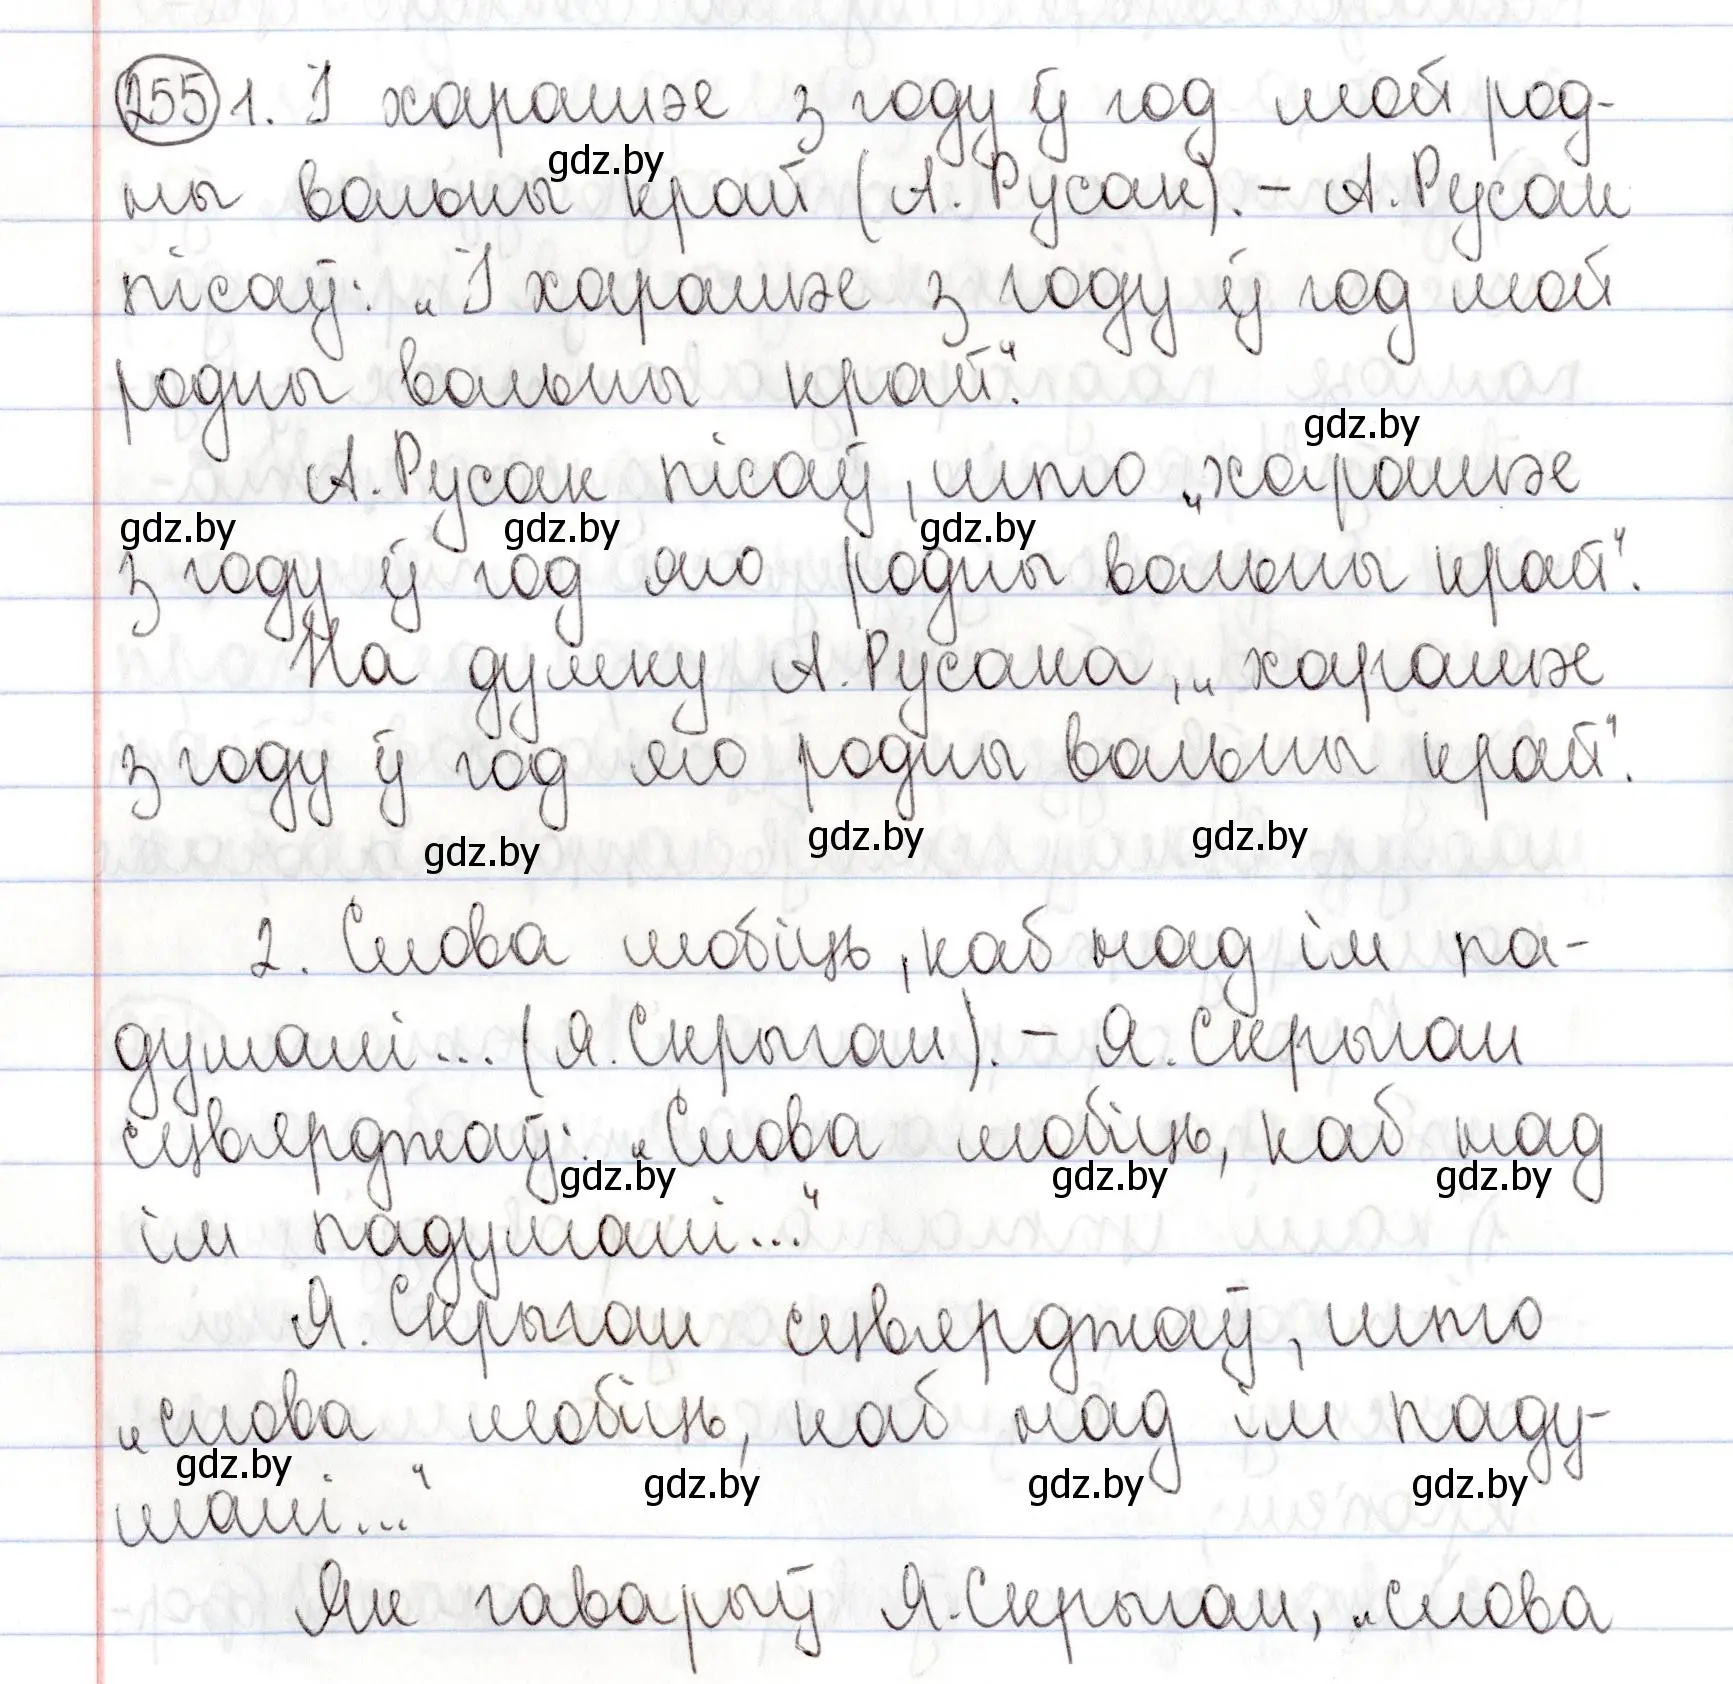 255 1. І харашэе з году ў год мой род-
ны вольны край (А. Русак). – А. Русак
gdz.by
пісаў: „І харашэе з году ў год мой
родны вольны край“.
gdz.by
А. Русак пісаў, што „харашэе
gdz.by gdz.by gdz.by
з году ў год яго родны вольны край“.
На думку А. Русака, „харашэе
з году ў год яго родны вольны край“.
gdz.by gdz.by gdz.by
2. Слова любіць, каб над ім па-
думалі... (Я. Скрыган). – Я. Скрыган
сцвярджаў: „Слова любіць, каб над
gdz.by gdz.by gdz.by
ім падумалі...“
Я. Скрыган сцвярджаў, што
„слова любіць, каб над ім паду-
gdz.by gdz.by gdz.by gdz.by
малі...“
Як гаварыў Я. Скрыган, „слова